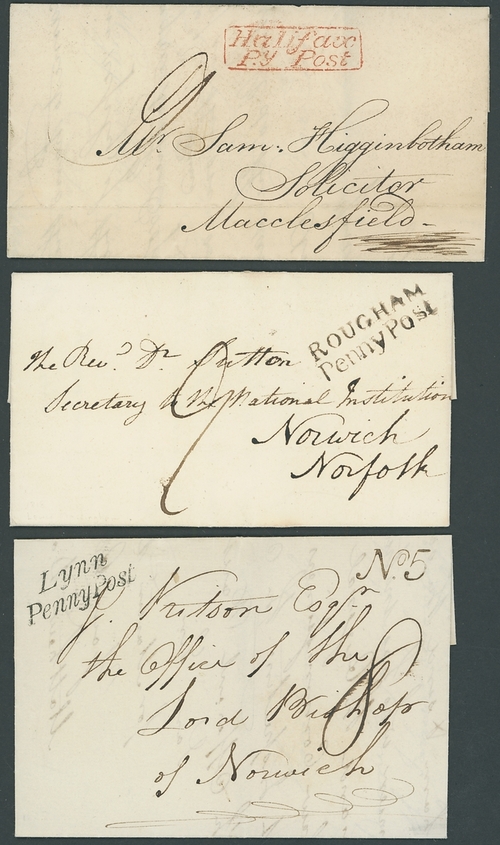 Halifax
Py Post
Mr. Sam: Higginbotham
Solicitor
Macclesfield
ROUGHAM
Penny Post
The Revd. Dr. Sutton
Secretary to the National Institution
Norwich
Norfolk
Lynn
Penny Post
No. 5
J. Kitson Esqr.
the Office of the
Lord Bishop
of Norwich
8